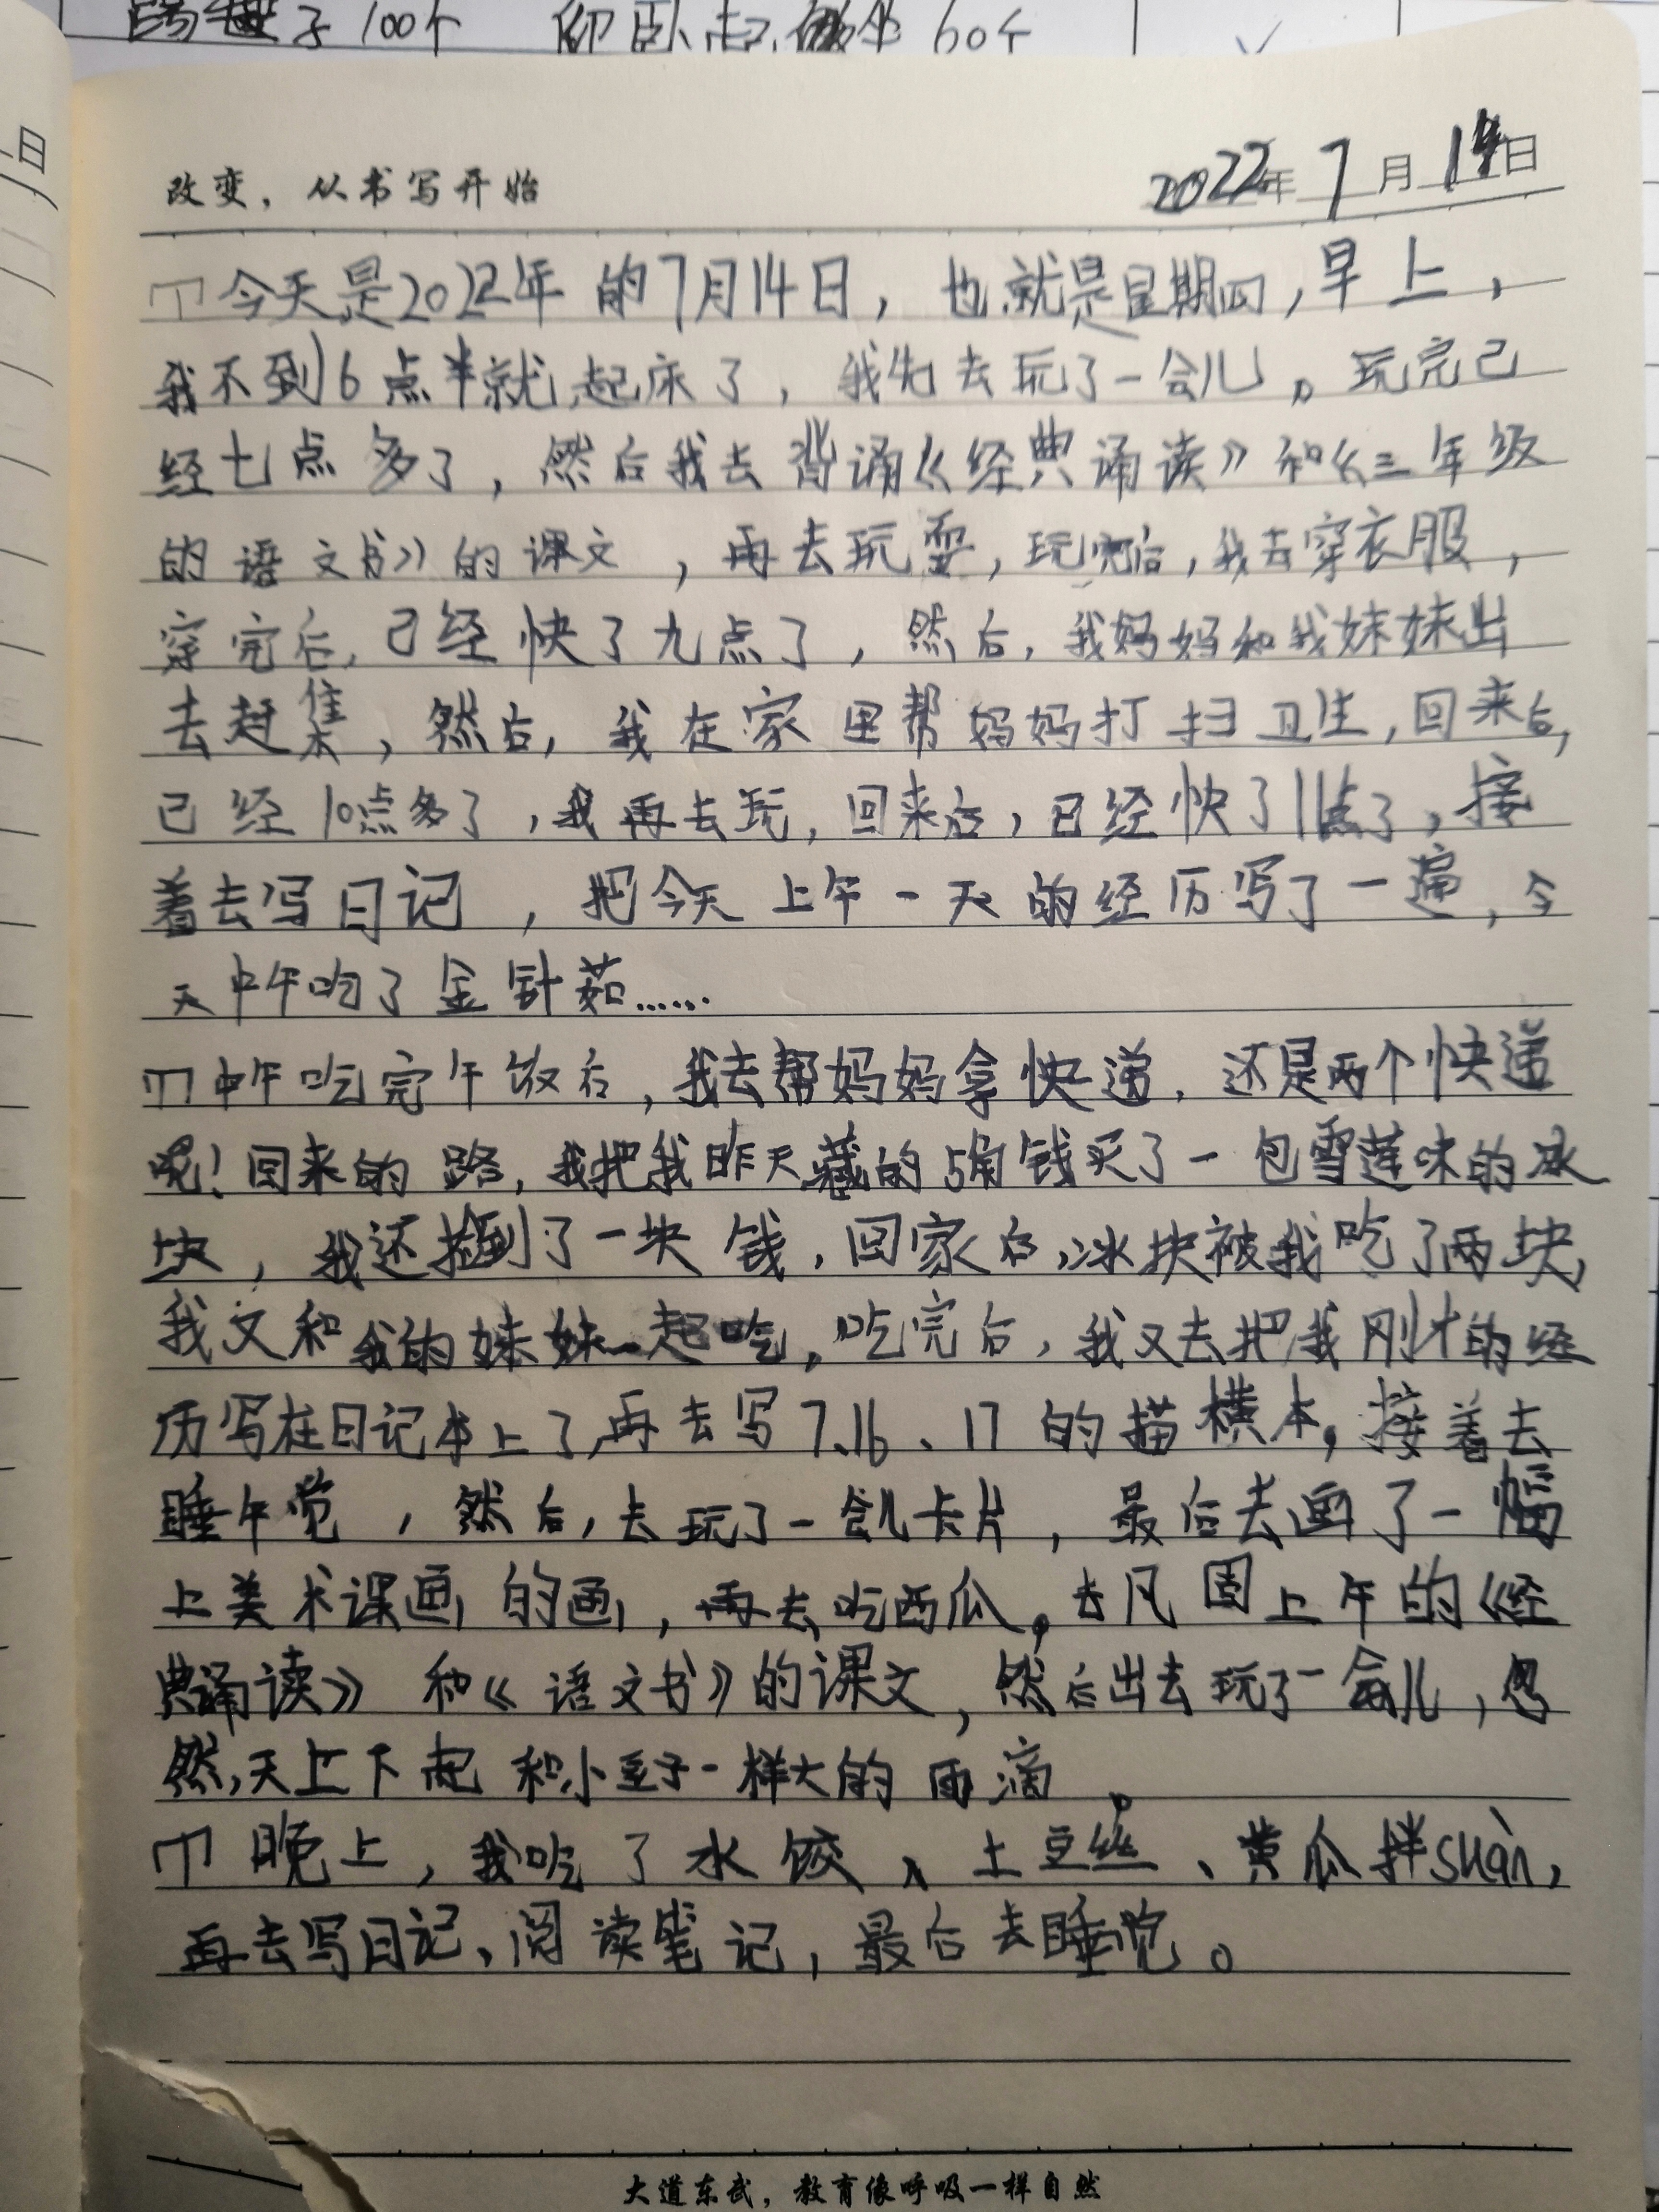 100个 仰卧起坐60个
日
改变，从书写开始
2022年7月14日
今天是2022年的7月14日，也就是星期四，早上，
我不到6点半就起床了，我先去玩了一会儿。玩完已
经七点多了，然后我去背诵《经典诵读》和《三年级
的语文书》的课文，再去玩耍，玩完后，我去穿衣服，
穿完后，已经快了九点了，然后，我妈妈和我妹妹出
去赶集，然后，我在家里帮妈妈打扫卫生，回来后，
已经10点多了，我再去玩，回来后，已经快了11点了，接
着去写日记，把今天上午一天的经历写了一遍，今
天中午吃了金针茹……
中午吃完午饭后，我去帮妈妈拿快递，还是两个快递
呢！回来的路，我把我昨天藏的5角钱买了一包雪莲味的冰
块，我还捡到了一块钱，回家后，冰块被我吃了两块，
我又和我的妹妹一起吃，吃完后，我又去把我刚才的经
历写在日记本上了，再去写7.16、17的描横本，接着去
睡午觉，然后，去玩了一会儿卡片，最后去画了一幅
上美术课画的画，再去吃西瓜。去凡固上午的《经
典诵读》和《语文书》的课文，然后出去玩了一会儿，忽
然，天上下起和小豆子一样大的雨滴。
晚上，我吃了水饺、土豆丝、黄瓜拌suàn，
再去写日记、阅读笔记，最后去睡觉。
大道东武，教育像呼吸一样自然